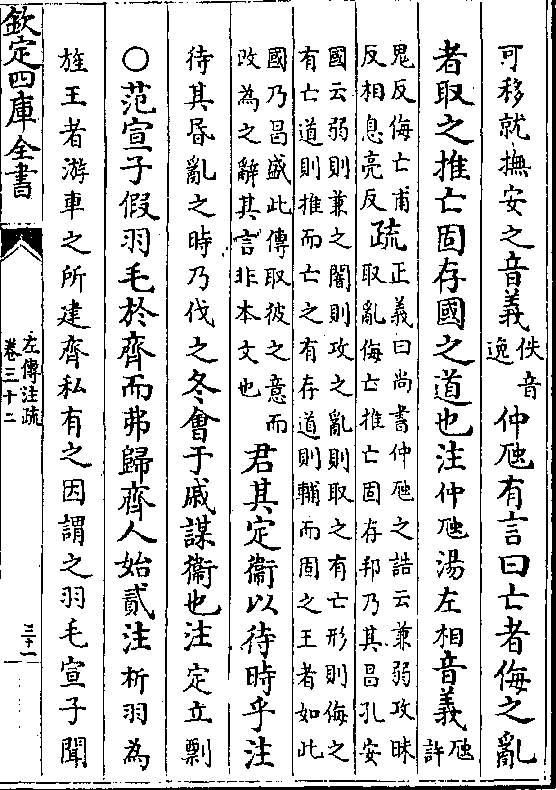 可移就撫安之音義佚音
逸仲虺有言曰亡者侮之亂
者取之推亡固存國之道也注仲虺湯左相音義虺許
鬼反侮亡甫
反相息亮反疏正義曰尚書仲虺之誥云兼弱攻昧
取亂侮亡推亡固存邦乃其昌孔安
國云弱則兼之闇則攻之亂則取之有亡形則侮之
有亡道則推而亡之有存道則輔而固之王者如此
國乃昌盛此傳取彼之意而
改為之辭其言非本文也君其定衛以待時乎注
待其昏亂之時乃伐之冬會于戚謀衛也注定立剽
○范宣子假羽毛於齊而弗歸齊人始貳注析羽為
旌王者游車之所建齊私有之因謂之羽毛宣子聞
欽定四庫全書
左傳注疏
卷三十二
三十一